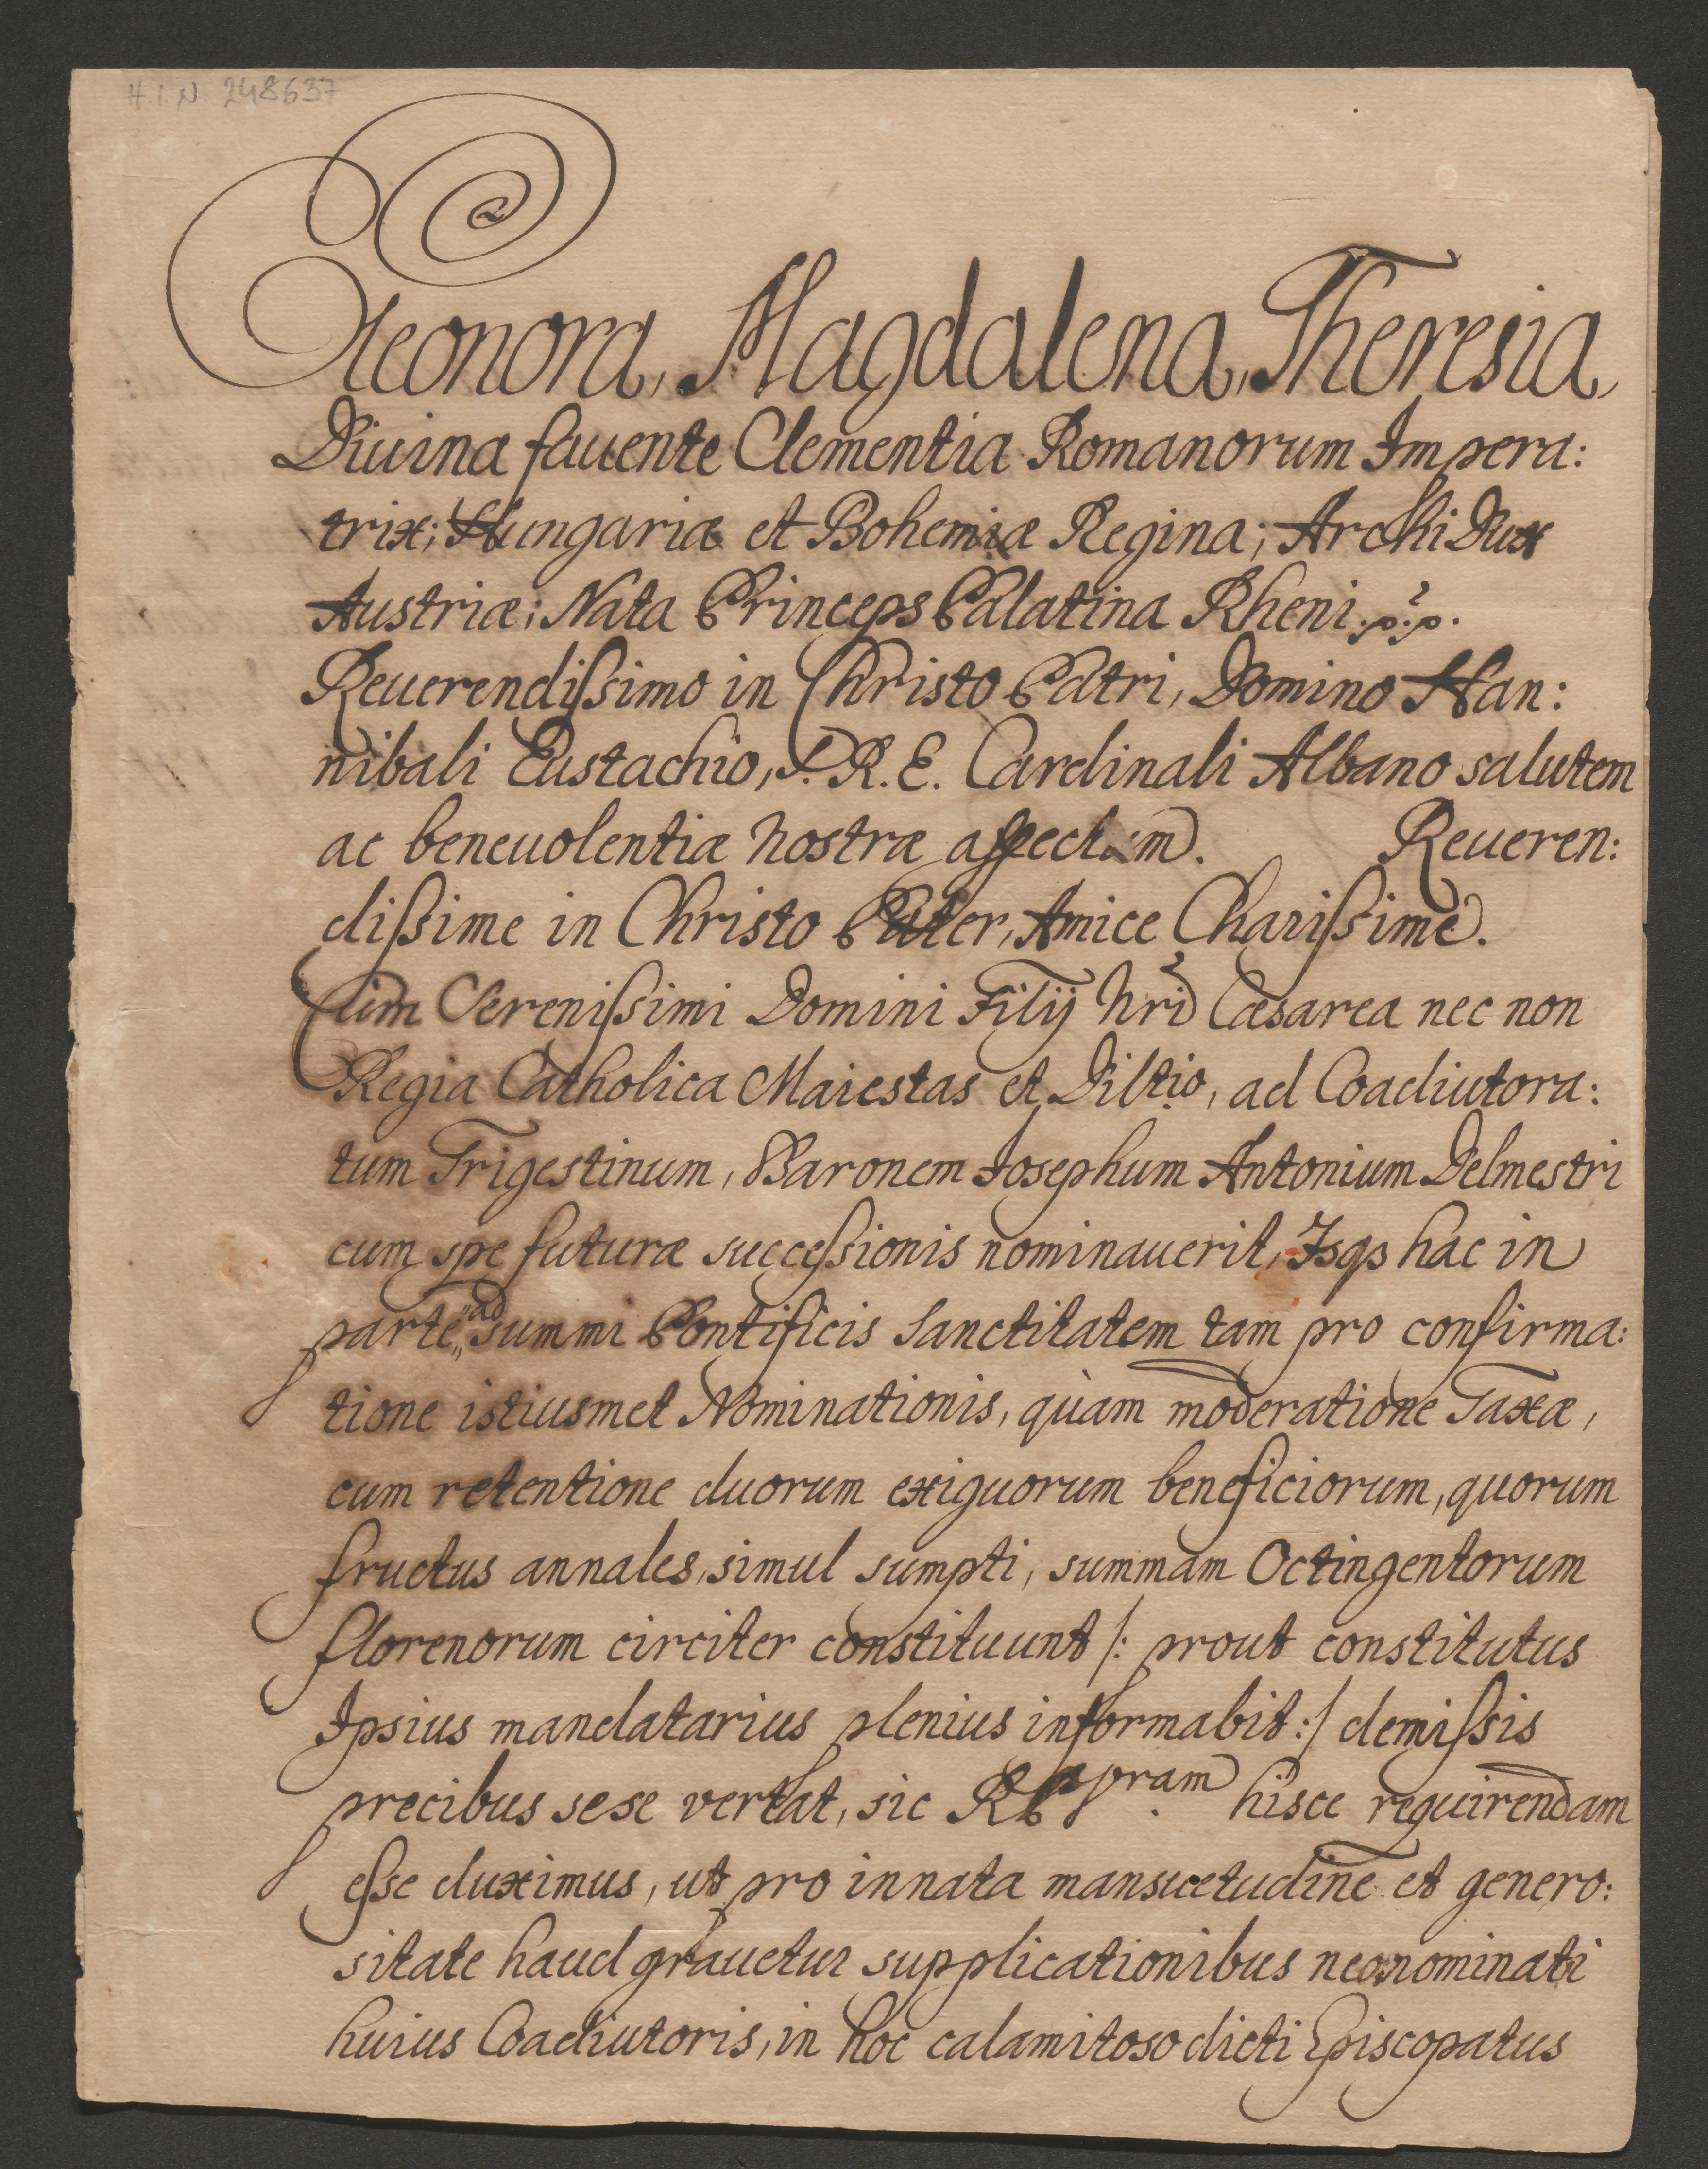 H.I.N. 248637
Eleonora, Magdalena, Theresia,
Diuina fauente Clementia Romanorum Impera:
trix; Hungariæ et Bohemiæ Regina; Archi Dux
Austriæ; Nata Princeps Palatina Rheni .p.p.
Reuerendißimo in Christo Patri, Domino Han:
nibali Eustachio, S. R. E. Cardinali Albano salutem
ac beneuolentiæ nostræ affectum. Reueren:
dißime in Christo Pater, Amice Charißime.
Cum Serenißimi Domini Filij Nri Cæsarea nec non
Regia Catholica Maiestas et Diltio, ad Coadiutora:
tum Trigestinum, Baronem Josephum Antonium Delmestri
cum spe futuræ succeßionis nominauerit, Isqs hac in
parte, ad summi Pontificis Sanctitatem tam pro confirma:
tione istiusmet Nominationis, quàm moderatione Taxæ,
cum retentione duorum exiguorum beneficiorum, quorum
fructus annales, simul sumpti, summam Octingentorum
florenorum circiter constituunt /: prout constitutus
Ipsius mandatarius plenius informabit :/ demißis
precibus sese vertat, sic hisce requirendam
eße duximus, ut pro innata mansuetudine et genero:
sitate haud grauetur supplicationibus neonominati
huius Coadiutoris, in hoc calamitoso dicti Episcopatus